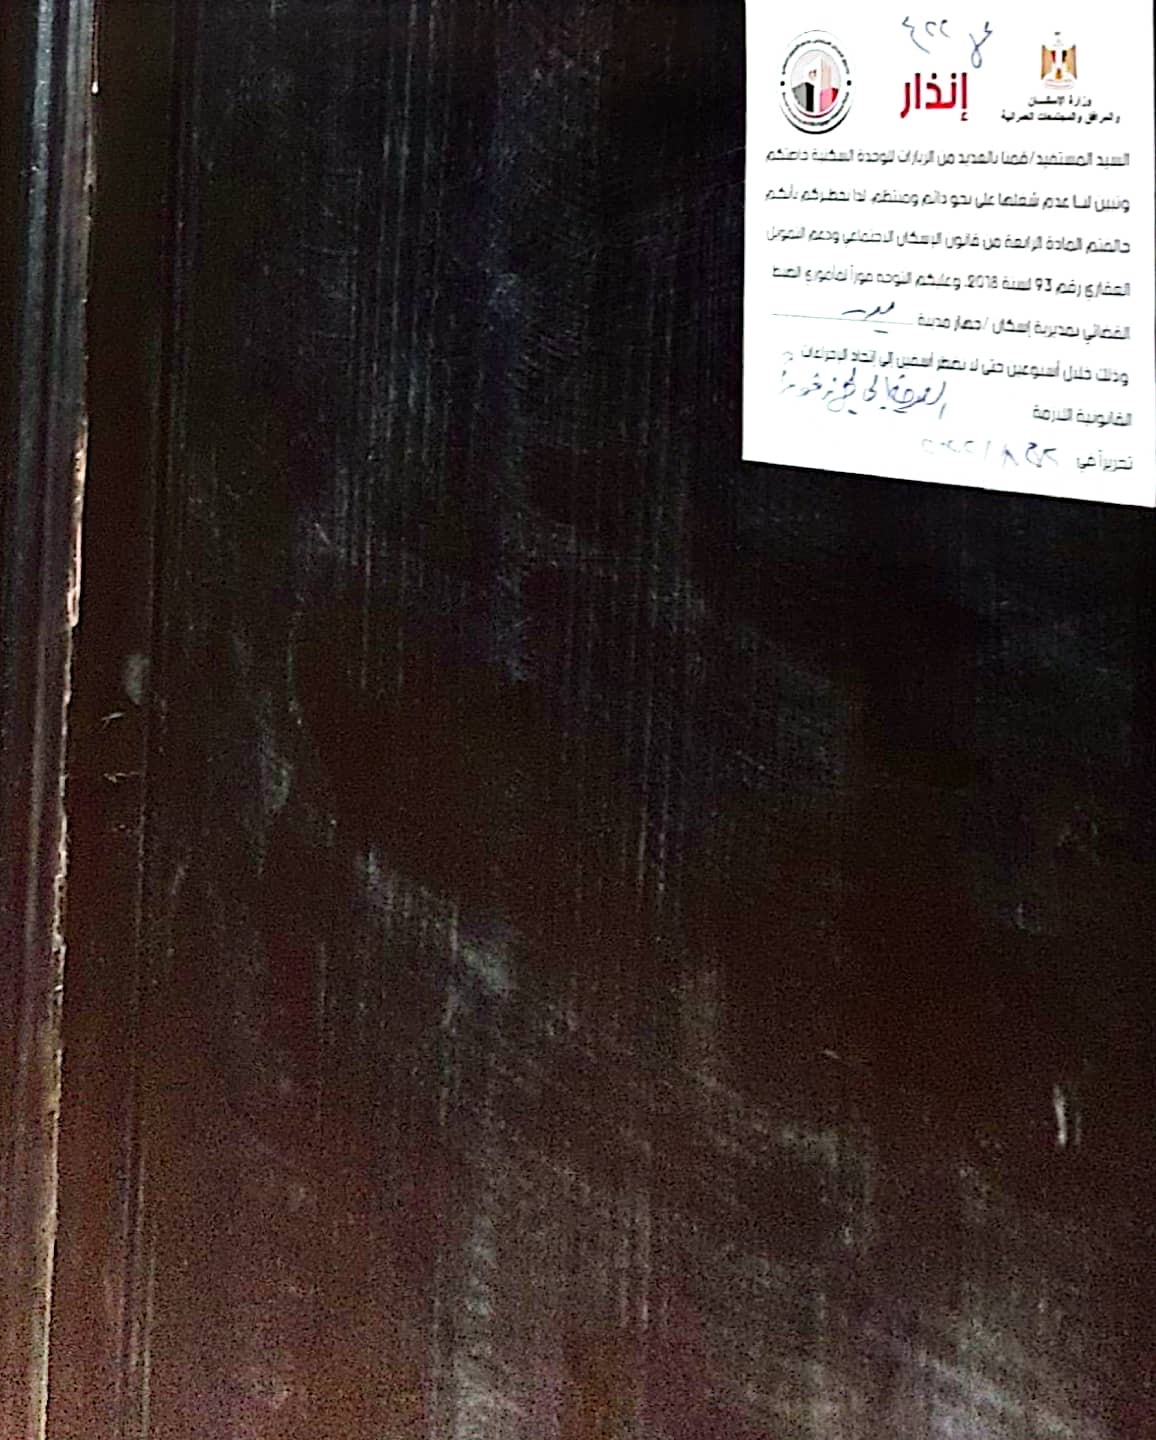 ٤٢٢
إنذار
وزارة الإسكان
والمرافق والمجتمعات العمرانية
السيد المستفيد/قمنا بالعديد من الزيارات للوحدة السكنية خاصتكم
وتبين لنا عدم شغلها على نحو دائم ومنتظم، لذا نخطركم بأنكم
خالفتم المادة الرابعة من قانون الإسكان الاجتماعي ودعم التمويل
العقاري رقم 93 لسنة 2018، وعليكم التوجه فوراً لمأموري الضبط
القضائي بمديرية إسكان /جهاز مدينة
وذلك خلال أسبوعين حتى لا نضطر آسفين إلى إتخاذ الإجراءات
القانونية اللازمة
تحريراً في